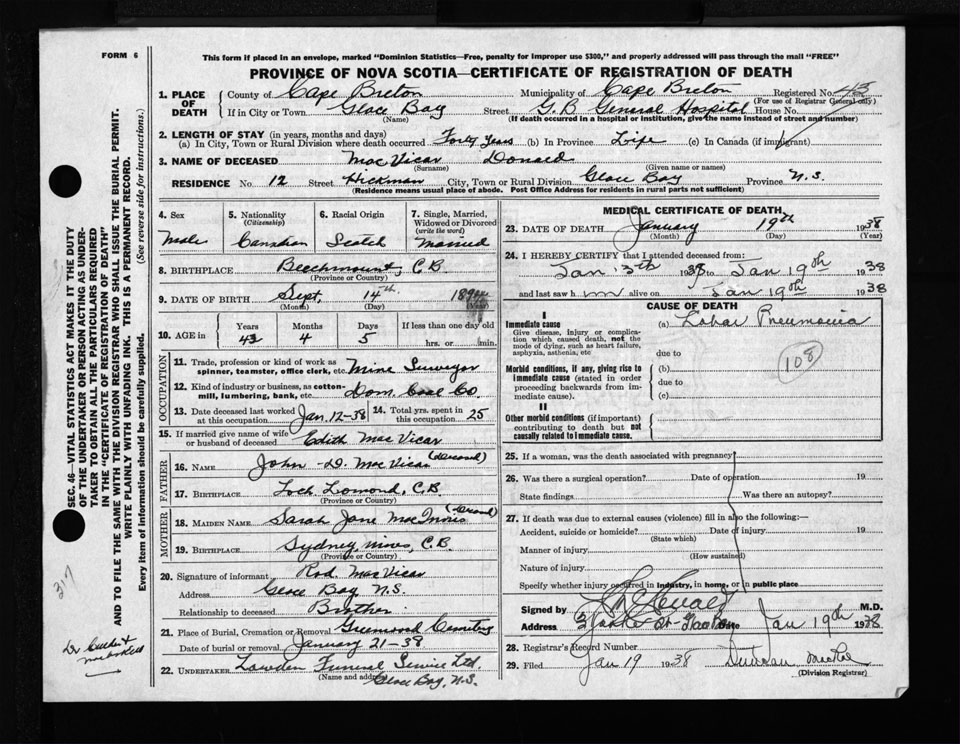 FORM 6
This form if placed in an envelope, marked "Dominion Statistics—Free, penalty for improper use $300," and properly addressed will pass through the mail "FREE"
PROVINCE OF NOVA SCOTIA—CERTIFICATE OF REGISTRATION OF DEATH
1. PLACE OF DEATH County of Cape Breton Municipality of Cape Breton Registered No. 43
(For use of Registrar General only)
If in City or Town Glace Bay Street G.B General Hospital House No.
(Name) (If death occurred in a hospital or institution, give the name instead of street and number)
2. LENGTH OF STAY (in years, months and days)
(a) In City, Town or Rural Division where death occurred Forty Years (b) In Province Life (c) In Canada (if immigrant)
3. NAME OF DECEASED MacVicar Donald
(Surname) (Given name or names)
RESIDENCE No. 12 Street Hickman City, Town or Rural Division Glace Bay Province N.S.
(Residence means usual place of abode. Post Office Address for residents in rural parts not sufficient)
SEC. 46—VITAL STATISTICS ACT MAKES IT THE DUTY
OF THE UNDERTAKER OR PERSON ACTING AS UNDER-
TAKER TO OBTAIN ALL THE PARTICULARS REQUIRED
IN THE "CERTIFICATE OF REGISTRATION OF DEATH"
AND TO FILE THE SAME WITH THE DIVISION REGISTRAR WHO SHALL ISSUE THE BURIAL PERMIT.
WRITE PLAINLY WITH UNFADING INK. THIS IS A PERMANENT RECORD.
Every item of information should be carefully supplied. (See reverse side for instructions.)
317
4. Sex 5. Nationality (Citizenship) 6. Racial Origin 7. Single, Married, Widowed or Divorced (write the word)
Male Canadian Scotch Married
8. BIRTHPLACE Beechmount, C.B.
(Province or Country)
9. DATE OF BIRTH Sept. 14th 1894
(Month) (Day) (Year)
10. AGE in Years Months Days If less than one day old
43 4 5 hrs. or min.
OCCUPATION
11. Trade, profession or kind of work as spinner, teamster, office clerk, etc. Mine Surveyor
12. Kind of industry or business, as cotton-mill, lumbering, bank, etc. Dom. Coal Co.
13. Date deceased last worked at this occupation Jan. 12-38 14. Total yrs. spent in this occupation 25
15. If married give name of wife or husband of deceased Edith MacVicar
FATHER
16. NAME John D. MacVicar (deceased)
17. BIRTHPLACE Loch Lomond, C.B.
(Province or Country)
MOTHER
18. MAIDEN NAME Sarah Jane MacInnis
19. BIRTHPLACE Sydney Mines, C.B.
(Province or Country)
20. Signature of informant Rod. MacVicar
Address Glace Bay, N.S.
Relationship to deceased Brother
21. Place of Burial, Cremation or Removal Greenwood Cemetery
Date of burial or removal January 21-38
22. UNDERTAKER Lowden Funeral Service Ltd.
(Name and address) Glace Bay, N.S.
MEDICAL CERTIFICATE OF DEATH
23. DATE OF DEATH January 19th 1938
(Month) (Day)
24. I HEREBY CERTIFY that I attended deceased from:
Jan 13th 1938 to Jan 19th 1938
and last saw him alive on Jan 19th 1938
CAUSE OF DEATH
I
Immediate cause (a) Lobar Pneumonia
Give disease, injury or complication which caused death, not the mode of dying, such as heart failure, asphyxia, asthenia, etc
due to
108
Morbid conditions, if any, giving rise to immediate cause (stated in order proceeding backwards from immediate cause). (b)
due to
(c)
II
Other morbid conditions (if important) contributing to death but not causally related to immediate cause.
25. If a woman, was the death associated with pregnancy?
26. Was there a surgical operation? Date of operation 19
State findings Was there an autopsy?
27. If death was due to external causes (violence) fill in also the following:—
Accident, suicide or homicide? Date of injury 19
(State which)
Manner of injury
(How sustained)
Nature of injury
Specify whether injury occurred in industry, in home, or in public place
Signed by M.D.
Address Date Jan 19th 1938
28. Registrar's Record Number
29. Filed Jan 19 1938 Duncan
(Division Registrar)